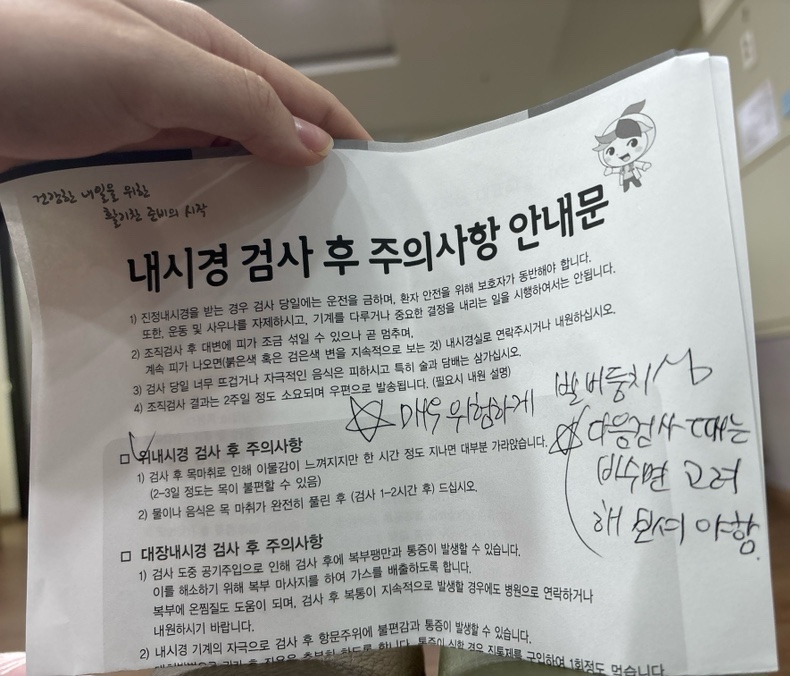 건강한 내일을 위한
활기찬 준비의 시작
내시경 검사 후 주의사항 안내문
1) 진정내시경을 받는 경우 검사 당일에는 운전을 금하며, 환자 안전을 위해 보호자가 동반해야 합니다.
또한, 운동 및 사우나를 자제하시고, 기계를 다루거나 중요한 결정을 내리는 일을 시행하여서는 안됩니다.
2) 조직검사 후 대변에 피가 조금 섞일 수 있으나 곧 멈추며,
계속 피가 나오면(붉은색 혹은 검은색 변을 지속적으로 보는 것) 내시경실로 연락주시거나 내원하십시오.
3) 검사 당일 너무 뜨겁거나 자극적인 음식은 피하시고 특히 술과 담배는 삼가십시오.
4) 조직검사 결과는 2주일 정도 소요되며 우편으로 발송됩니다. (필요시 내원 설명)
매우 위험하게 발버둥치심
다음검사 때는
비수면 고려
해 보셔야함.
□ 위내시경 검사 후 주의사항
1) 검사 후 목마취로 인해 이물감이 느껴지지만 한 시간 정도 지나면 대부분 가라앉습니다.
(2-3일 정도는 목이 불편할 수 있음)
2) 물이나 음식은 목 마취가 완전히 풀린 후 (검사 1-2시간 후) 드십시오.
□ 대장내시경 검사 후 주의사항
1) 검사 도중 공기주입으로 인해 검사 후에 복부팽만과 통증이 발생할 수 있습니다.
이를 해소하기 위해 복부 마사지를 하여 가스를 배출하도록 합니다.
복부에 온찜질도 도움이 되며, 검사 후 복통이 지속적으로 발생할 경우에도 병원으로 연락하거나
내원하시기 바랍니다.
2) 내시경 기계의 자극으로 검사 후 항문주위에 불편감과 통증이 발생할 수 있습니다.
통증이 심할 경우 진통제를 구입하여 1회정도 먹습니다